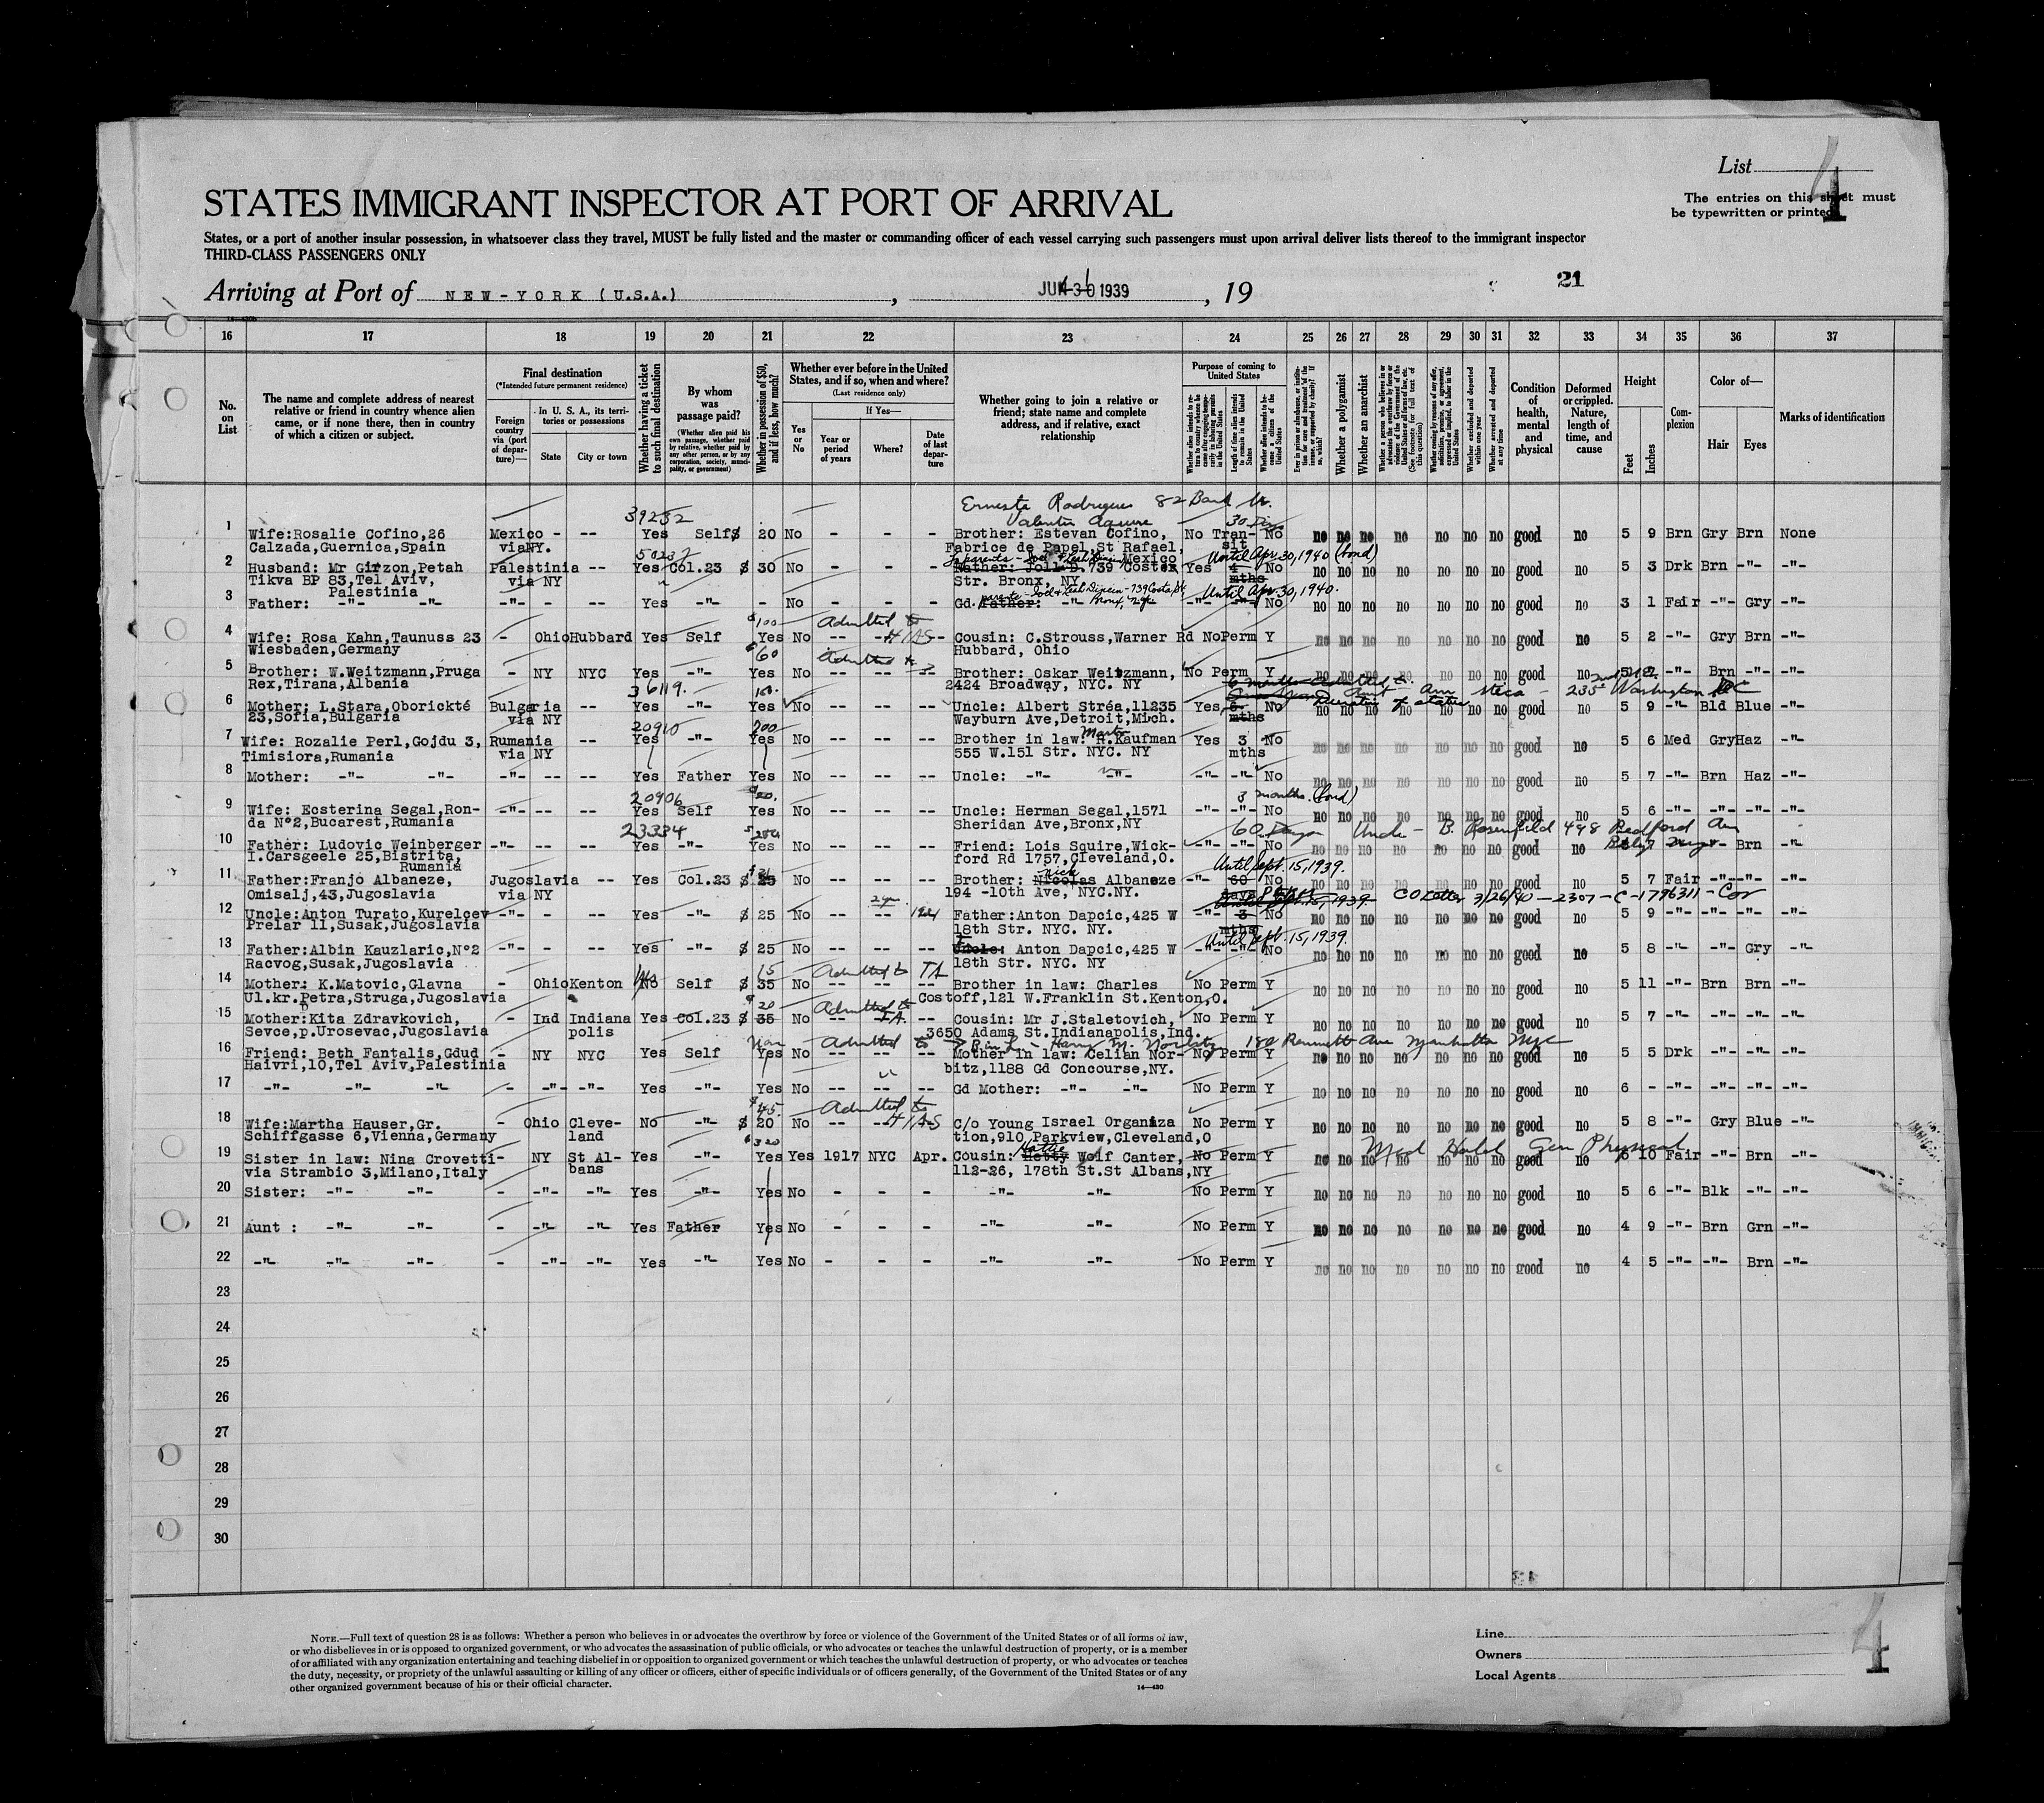 List 4
The entries on this sheet must
be typewritten or printed
STATES IMMIGRANT INSPECTOR AT PORT OF ARRIVAL
States, or a port of another insular possession, in whatsoever class they travel, MUST be fully listed and the master or commanding officer of each vessel carrying such passengers must upon arrival deliver lists thereof to the immigrant inspector
THIRD-CLASS PASSENGERS ONLY
21
Arriving at Port of NEW-YORK (U.S.A.), 1939, 19
16 17 18 19 20 21 22 23 24 25 26 27 28 29 30 31 32 33 34 35 36 37
No. on List
The name and complete address of nearest relative or friend in country whence alien came, or if none there, then in country of which a citizen or subject.
Final destination
(*Intended future permanent residence)
Foreign country via (port of departure)—
In U. S. A., its territories or possessions
State City or town
Whether having a ticket to such final destination
By whom was passage paid?
(Whether alien paid his own passage, whether paid by relative, whether paid by any other person, or by any corporation, society, municipality, or government)
Whether in possession of $50, and if less, how much?
Whether ever before in the United States, and if so, when and where?
(Last residence only)
Yes or No
If Yes—
Year or period of years Where? Date of last departure
Whether going to join a relative or friend; state name and complete address, and if relative, exact relationship
Purpose of coming to United States
Whether a polygamist
Whether an anarchist
Condition of health, mental and physical
Deformed or crippled. Nature, length of time, and cause
Height
Feet Inches
Complexion
Color of—
Hair Eyes
Marks of identification
Ernesta Rodrigues 82 Bank
39252 Valentin Aguirre 30 Days
1 Wife:Rosalie Cofino,26 Mexico - -- Yes Self $ 20 No - - - Brother: Estevan Cofino, No Tran- No no no no no no no no good no 5 9 Brn Gry Brn None
Calzada,Guernica,Spain viaNY. Fabrice de Papel,St Rafael, sit
Mexico Until Apr.30,1940 (bond)
2 Husband: Mr Girzon,Petah Palestinia -- Yes Col.23 $ 30 No - - - Father: Joll D.739 Coster Yes No no no no no no no no good no 5 3 Drk Brn -"- -"-
Tikva BP 83,Tel Aviv, via NY Str. Bronx, NY mths
Palestinia Until Apr.30,1940.
3 Father: -"- -"- -"- - -- Yes -"- - No - - - Gd. Father: -"- -"- -"- No no no no no no no no good no 3 1 Fair -"- Gry -"-
$100 Admitted to
4 Wife: Rosa Kahn,Taunuss 23 - Ohio Hubbard Yes Self Yes No -- HIAS -- Cousin: C.Strouss,Warner Rd No Perm Y no no no no no no no good no 5 2 -"- Gry Brn -"-
Wiesbaden,Germany Hubbard, Ohio
$60 Admitted to
5 Brother: W.Weitzmann,Pruga - NY NYC Yes -"- Yes No -- -- Brother: Oskar Weitzmann, No Perm Y no no no no no no no good no -"- Brn -"- -"-
Rex,Tirana,Albania 2424 Broadway, NYC. NY
36119. 6 months admitted to Aunt Ann Steca - 235 Washington
6 Mother: L.Stara,Oborickté Bulgaria -- Yes -"- Yes No -- -- -- Uncle: Albert Stréa,11235 Yes 6. No no no no no no no no good no 5 9 -"- Bld Blue -"-
23,Sofia,Bulgaria via NY Wayburn Ave,Detroit,Mich. mths Duration of status
20910 200 Martin
7 Wife: Rozalie Perl,Gojdu 3, Rumania -- Yes -"- Yes No -- -- -- Brother in law: H.Kaufman Yes 3 No no no no no no no no good no 5 6 Med Gry Haz -"-
Timisiora,Rumania via NY 555 W.151 Str. NYC. NY mths
8 Mother: -"- -"- -"- -- -- Yes Father Yes No -- -- -- Uncle: -"- -"- -"- -"- No no no no no no no no good no 5 7 -"- Brn Haz -"-
20906 3 months (bond)
9 Wife: Ecsterina Segal,Ron- -"- -- -- Yes Self Yes No -- -- -- Uncle: Herman Segal,1571 -"- -"- No no no no no no no no good no 5 6 -"- -"- -"- -"-
da N°2,Bucarest,Rumania Sheridan Ave,Bronx,NY
23334 60 Days Uncle - B. Rosenfeld 498 Bedford Ave
10 Father: Ludovic Weinberger -"- -- -- Yes -"- Yes No -- -- -- Friend: Lois Squire,Wick- -"- -"- No no no no no no no no good no Brn -"-
I.Carsgeele 25,Bistrita, ford Rd 1757,Cleveland,O.
Rumania Until Sept.15,1939.
11 Father:Franjo Albaneze, Jugoslavia -- Yes Col.23 $ 25 No -- -- -- Brother: Nicolas Nick Albaneze -"- 60 No no no no no no no no good no 5 7 Fair -"- -"- -"-
Omisalj,43,Jugoslavia via NY 194 -10th Ave, NYC.NY. days
1939. CO Letter 3/26/40 - 2307 - C-1796311 - Cov
12 Uncle:Anton Turato,Kurelcev -"- - -- Yes -"- $ 25 No -- -- 1924 Father:Anton Dapcic,425 W -"- 3 No no no no no no no no good no 5 9 -"- -"- -"- -"-
Prelar 11,Susak,Jugoslavia 18th Str. NYC. NY. mths
Until Sept.15,1939.
13 Father:Albin Kauzlaric,N°2 -"- - -- Yes -"- $ 25 No -- -- -- Uncle: Anton Dapcic,425 W -"- -"- No no no no no no no no good no 5 8 -"- -"- Gry -"-
Racvog,Susak,Jugoslavia 18th Str. NYC. NY
15 Admitted to TA
14 Mother: K.Matovic, Glavna - Ohio Kenton No Self $ 35 No -- -- -- Brother in law: Charles No Perm Y no no no no no no no good no 5 11 -"- Brn Brn -"-
Ul.kr.Petra,Struga,Jugoslavia Costoff,121 W.Franklin St.Kenton,O.
20 Admitted to
15 Mother:Kita Zdravkovich, - Ind Indiana Yes Col.23 $ 35 No -- TA. Cousin: Mr J.Staletovich, No Perm Y no no no no no no no good no 5 7 -"- -"- -"- -"-
Sevce,p.Urosevac,Jugoslavia polis 3650 Adams St.Indianapolis,Ind.
Admitted to B in L - Harry M. Norbitz 180 Bennett Ave Manhattan NYC
16 Friend: Beth Fantalis,Gdud - NY NYC Yes Self Yes No -- -- -- Mother in law: Celian Nor- No Perm Y no no no no no no no good no 5 5 Drk -"- -"- -"-
Haivri,10,Tel Aviv,Palestinia bitz,1188 Gd Concourse,NY.
17 -"- -"- -"- - -"- -"- Yes -"- Yes No -- -- -- Gd Mother: -"- -"- No Perm Y no no no no no no no good no 6 - -"- -"- -"- -"-
$45. Admitted to
18 Wife:Martha Hauser,Gr. - Ohio Cleve- No -"- $ 20 No -- HIAS C/o Young Israel Organiza No Perm Y no no no no no no no good no 5 8 -"- Gry Blue -"-
Schiffgasse 6,Vienna,Germany land tion,910 Parkview,Cleveland,O
$320 Hattie Med Hold Gen Physical
19 Sister in law: Nina Crovetti- - NY St Al- Yes -"- Yes Yes 1917 NYC Apr. Cousin: Hetty Wolf Canter, No Perm Y no no no no no no no good no 5 10 Fair -"- Brn -"-
via Strambio 3,Milano,Italy bans 112-26, 178th St.St Albans,NY
20 Sister: -"- -"- - -"- -"- Yes -"- Yes No - - - -"- -"- No Perm Y no no no no no no no good no 5 6 -"- Blk -"- -"-
21 Aunt : -"- -"- - -"- -"- Yes Father Yes No - - - -"- -"- No Perm Y no no no no no no no good no 4 9 -"- Brn Grn -"-
22 -"- -"- -"- - -"- -"- Yes -"- Yes No - - - -"- -"- No Perm Y no no no no no no no good no 4 5 -"- -"- Brn -"-
23
24
25
26
27
28
29
30
NOTE.—Full text of question 28 is as follows: Whether a person who believes in or advocates the overthrow by force or violence of the Government of the United States or of all forms of law,
or who disbelieves in or is opposed to organized government, or who advocates the assassination of public officials, or who advocates or teaches the unlawful destruction of property, or is a member
of or affiliated with any organization entertaining and teaching disbelief in or opposition to organized government or which teaches the unlawful destruction of property, or who advocates or teaches
the duty, necessity, or propriety of the unlawful assaulting or killing of any officer or officers, either of specific individuals or of officers generally, of the Government of the United States or of any
other organized government because of his or their official character.
14—430
Line
Owners
Local Agents
4